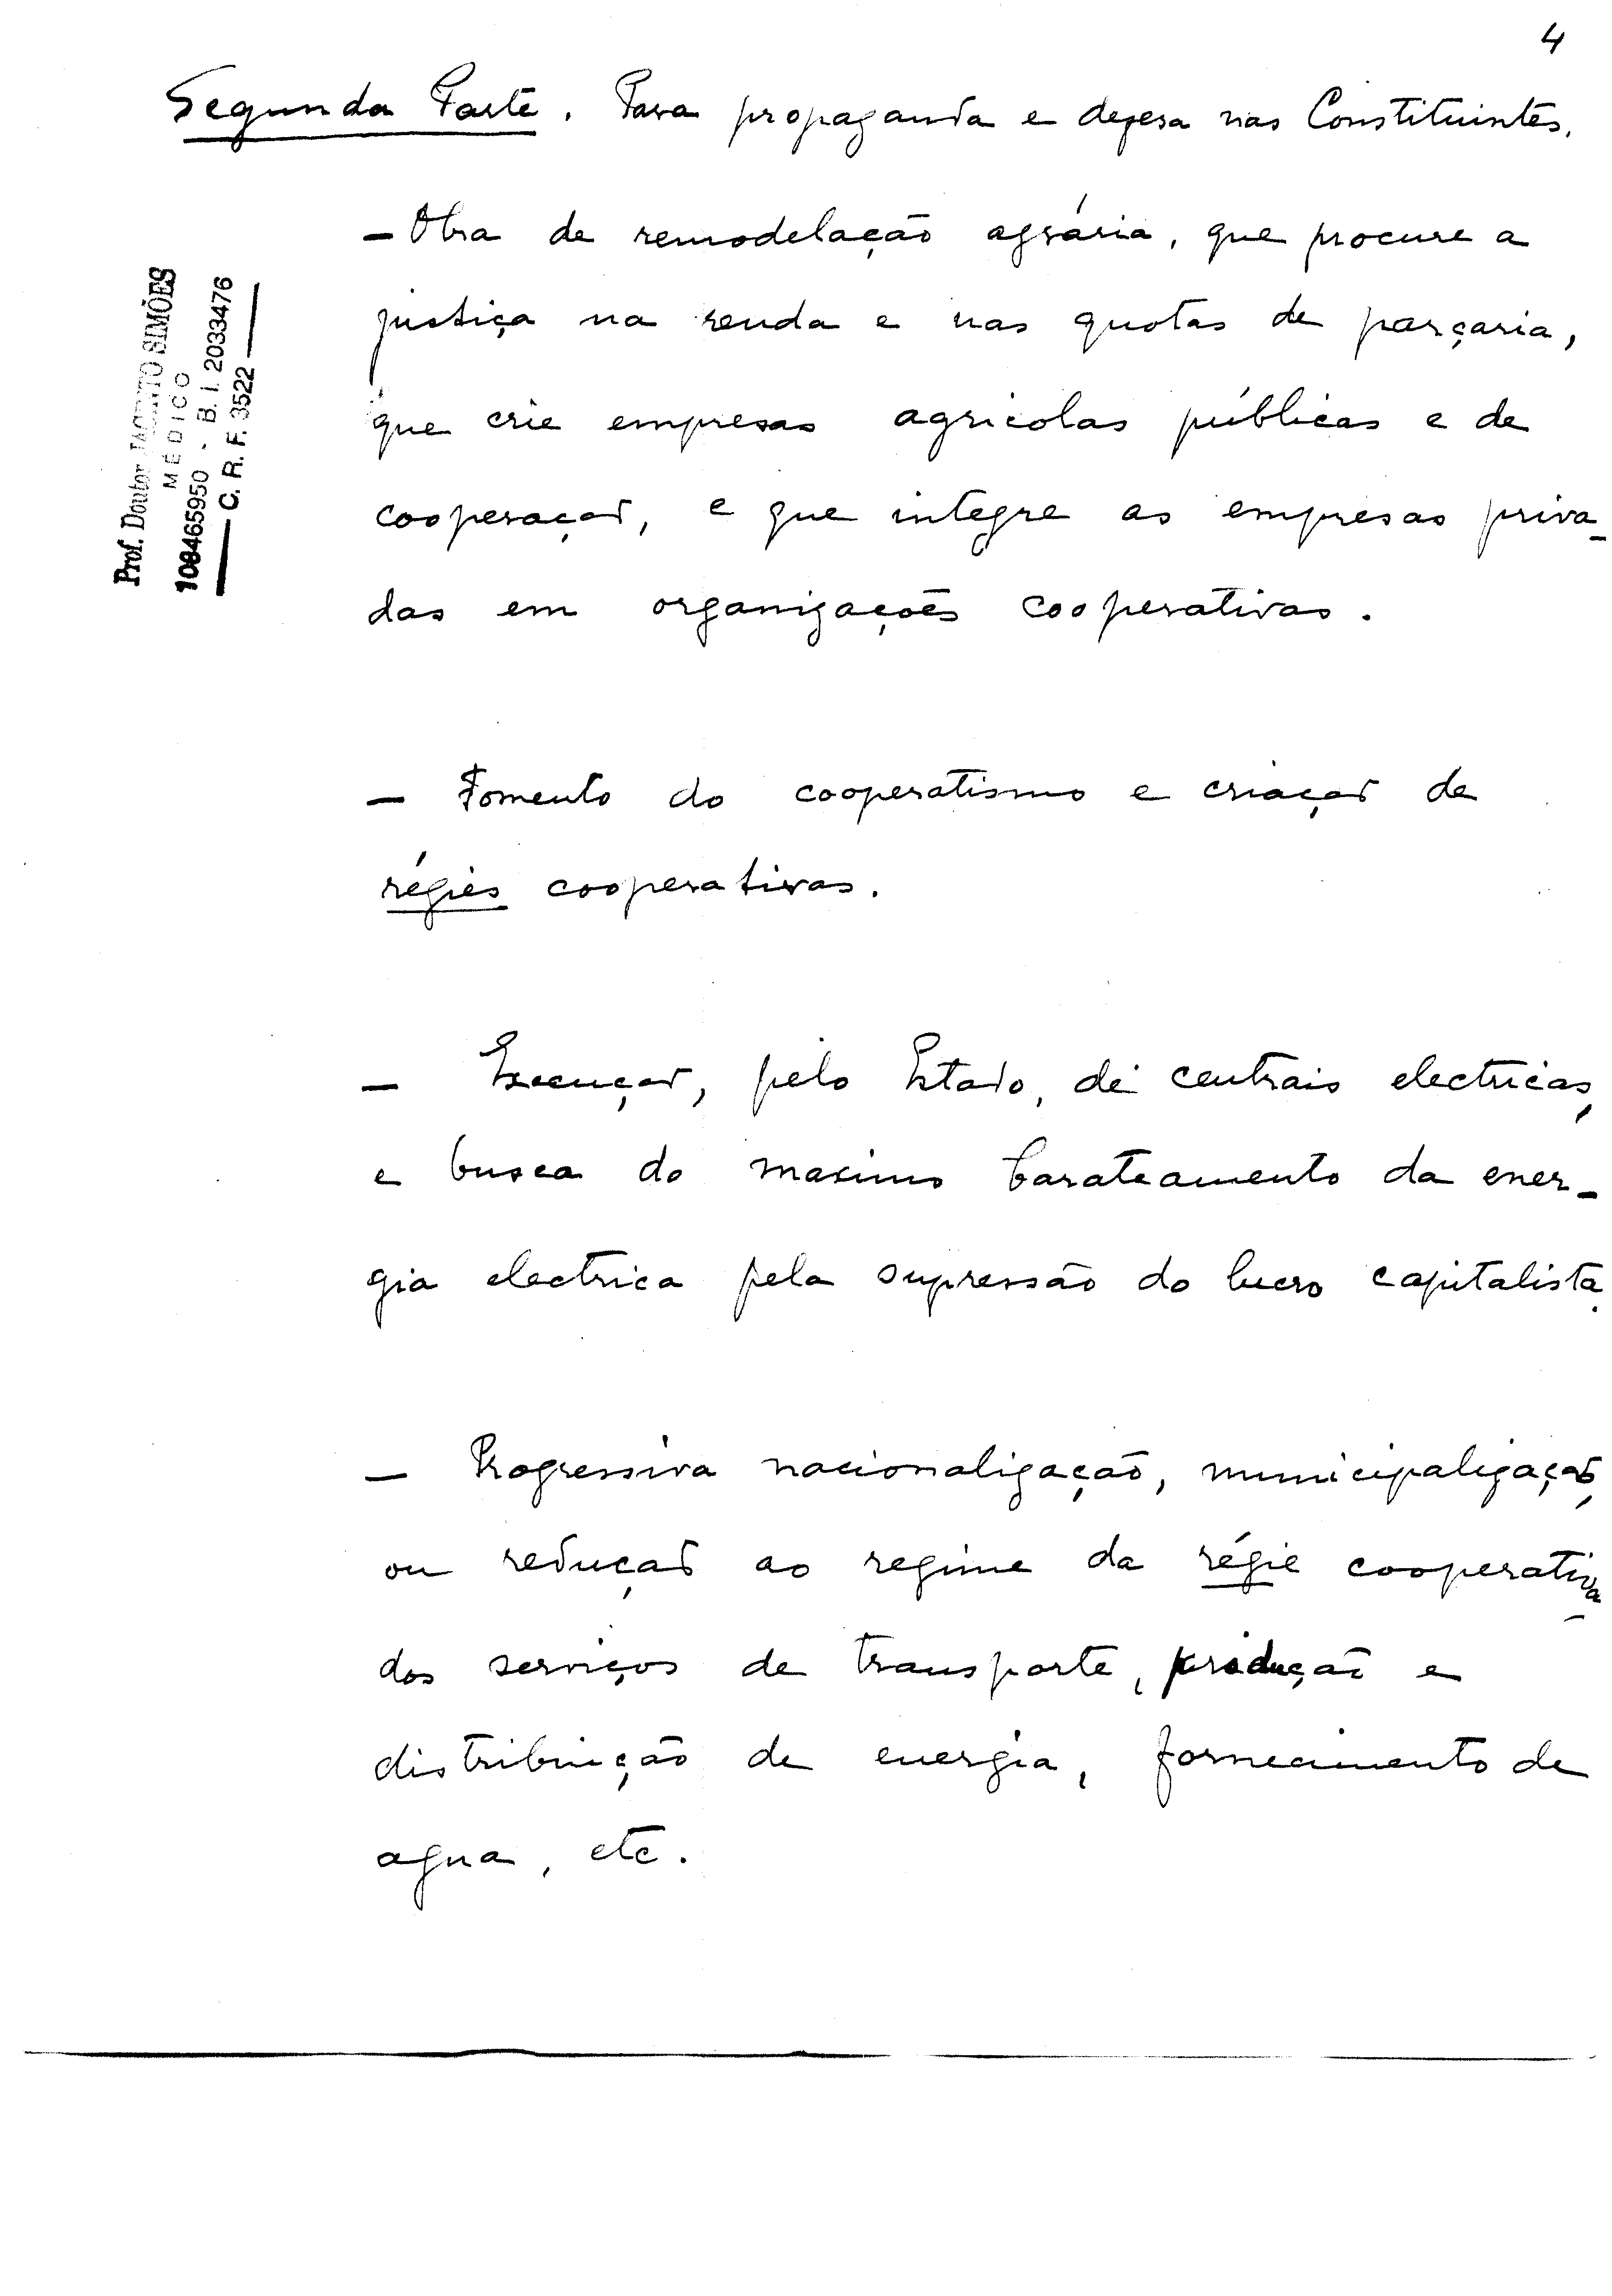 4
Segunda Parte. Para propaganda e defesa nas Constituintes.
- Obra de remodelação agrária, que procure a
justiça na renda e nas quotas de parçaria,
que crie empresas agricolas públicas e de
cooperação, e que integre as empresas priva-
das em organizações cooperativas.
- Fomento do cooperatismo e criação de
régies cooperativas.
- Execução, pelo Estado, de centrais electricas,
e busca do maximo barateamento da ener-
gia electrica pela supressão do lucro capitalista.
- Progressiva nacionalização, municipalização,
ou redução ao regime da régie cooperativa
dos serviços de transporte, produção e
distribuição de energia, fornecimento de
agua, etc.
Prof. Doutor JACINTO SIMÕES
MÉDICO
108465950 - B. I. 2033476
C. R. F. 3522